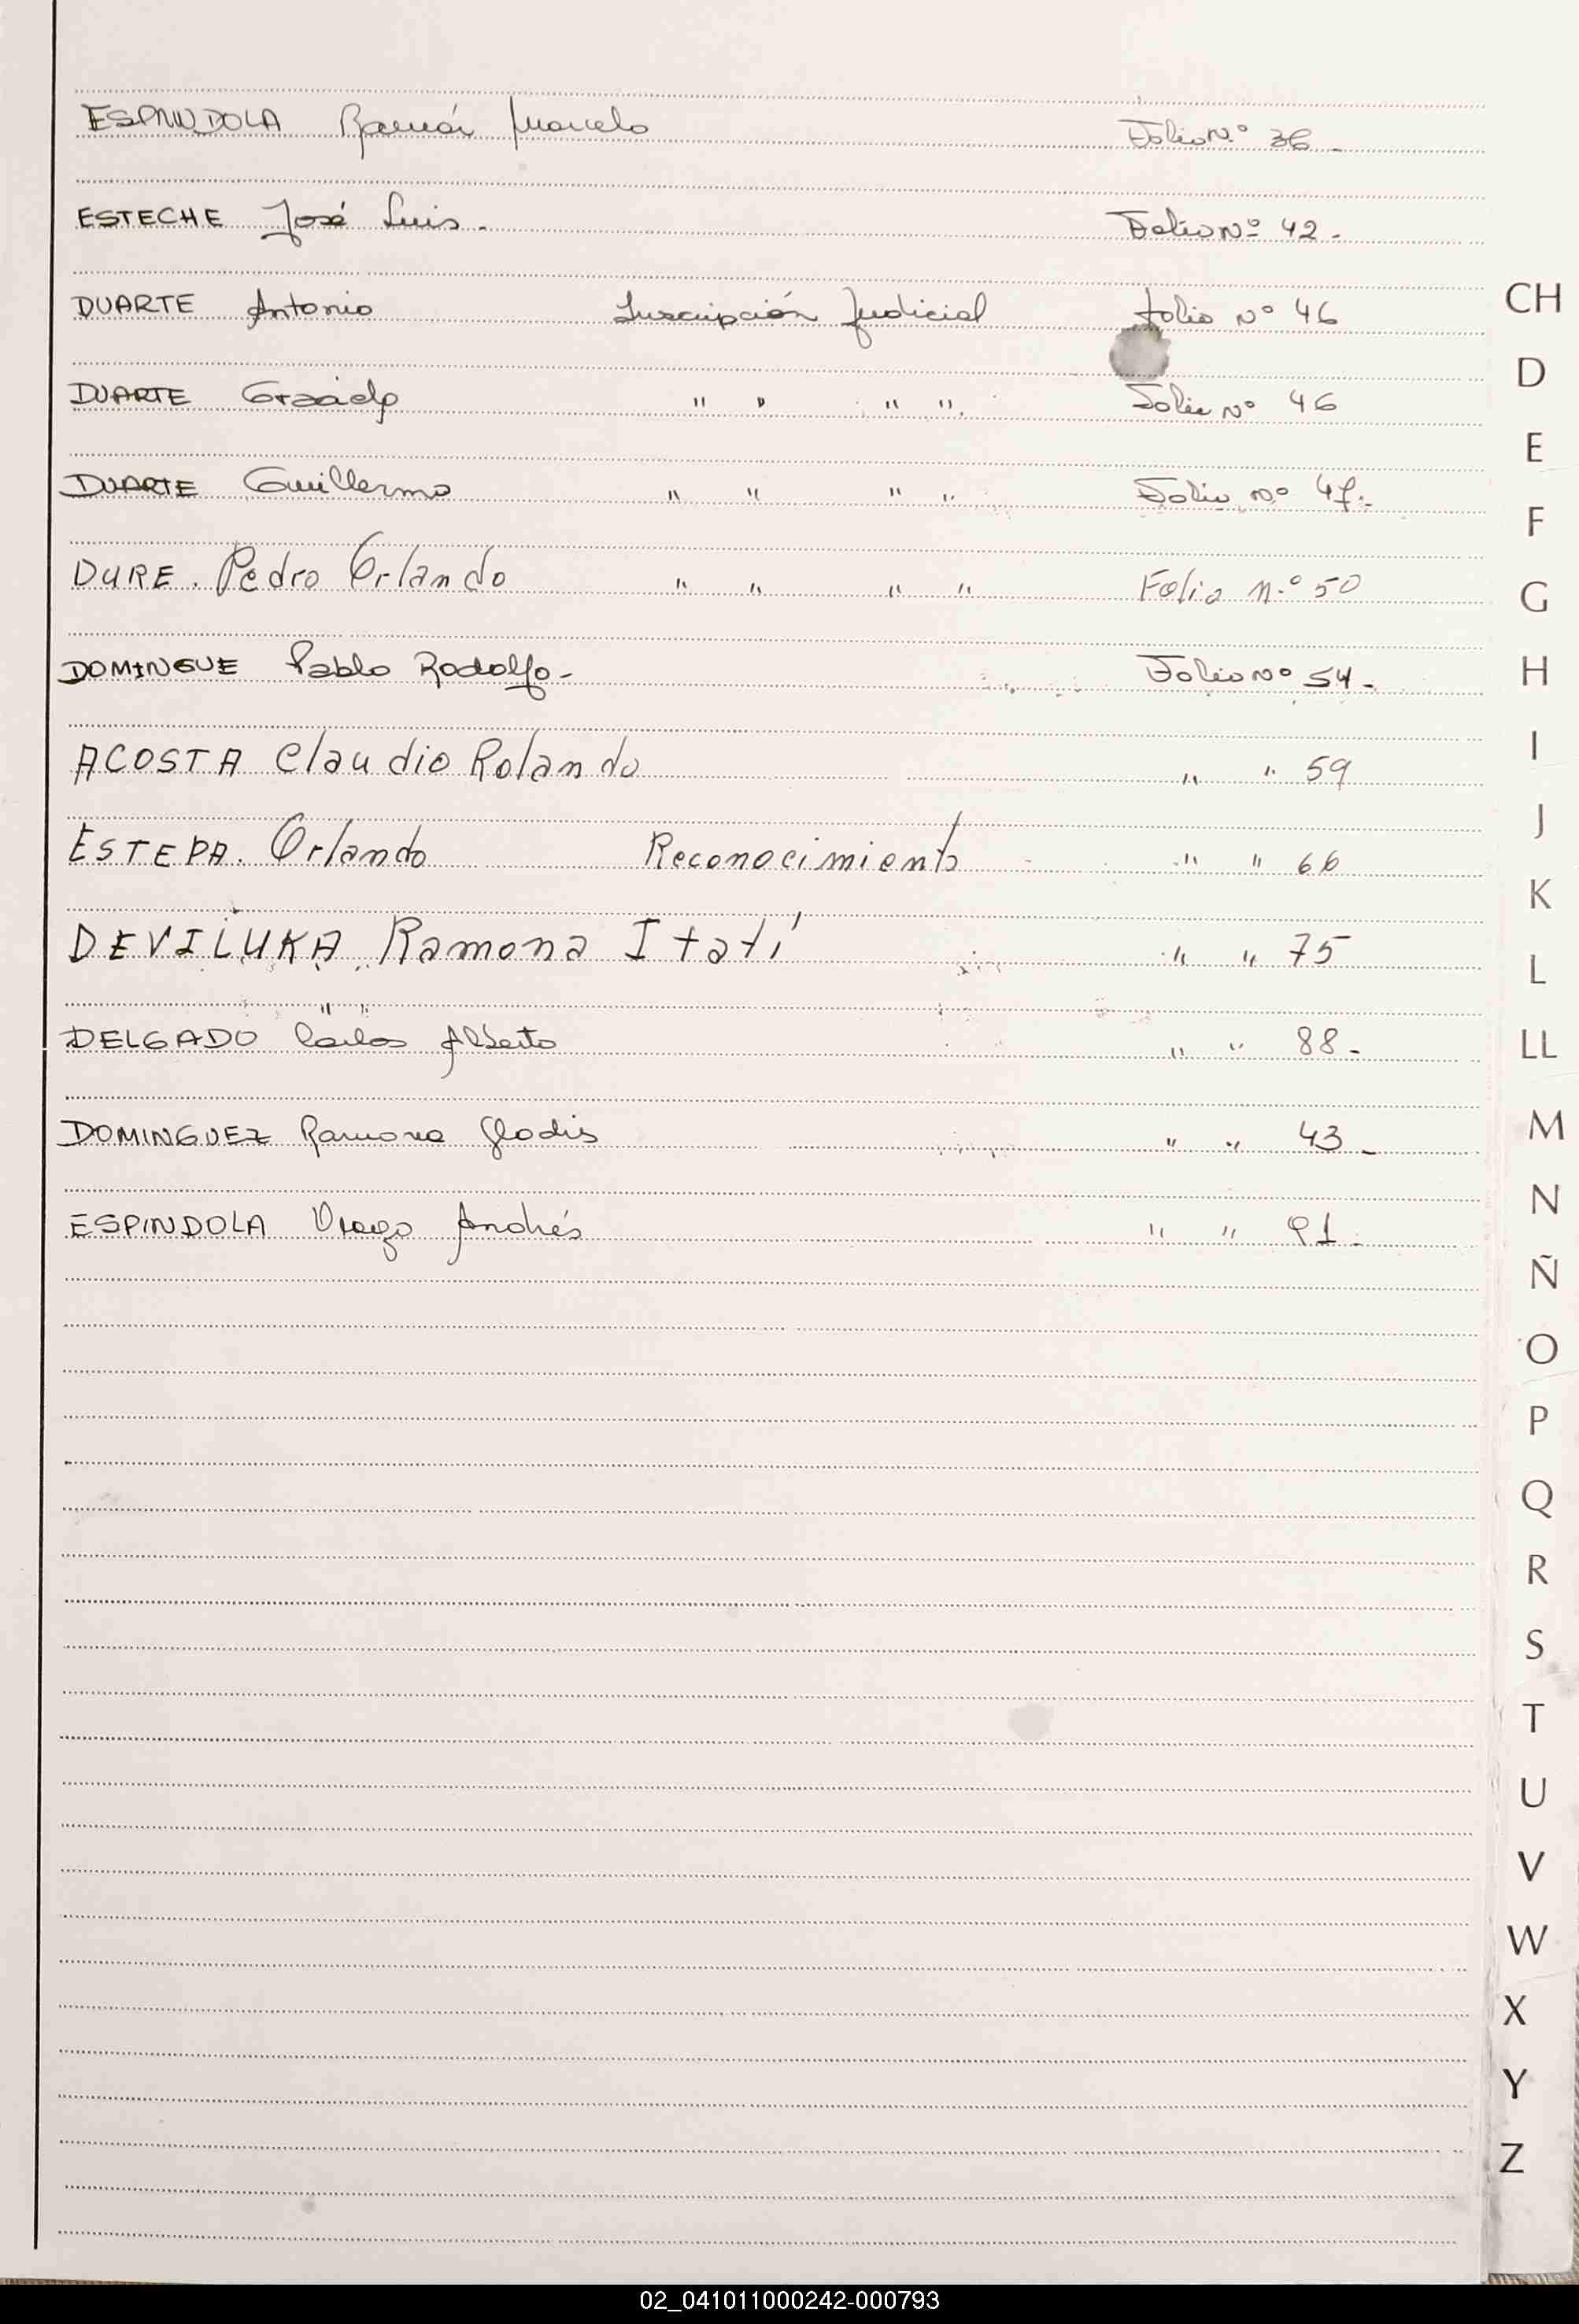 ESPINDOLA Ramón Marcelo Folio N.º 36.-
ESTECHE José Luis. Folio Nº 42.-
DUARTE Antonio Inscripción Judicial folio Nº 46
DUARTE " " " " Folio Nº 46
DUARTE Guillermo " " " " Folio Nº 47.-
DURE. Pedro Orlando " " " " Folio n.º 50
DOMINGUE Pablo Rodolfo.- Folio Nº 54.-
ACOSTA Claudio Rolando " " 59
ESTEPA. Orlando Reconocimiento " " 66
DEVILUKA Ramona Itatí " " 75
DELGADO Carlos Alberto " " 88.-
DOMINGUEZ Ramona Gladis " " 43.-
ESPINDOLA Diego Andrés " " 91.-
CH
D
E
F
G
H
I
J
K
L
LL
M
N
Ñ
O
P
Q
R
S
T
U
V
W
X
Y
Z
02_041011000242-000793